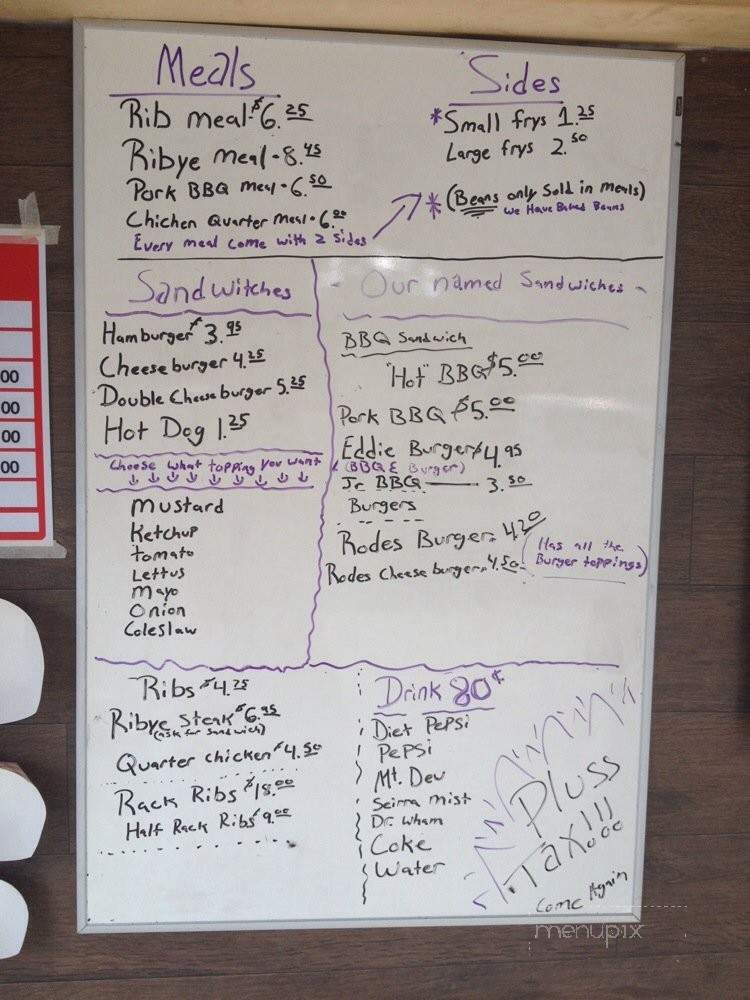 Meals
Rib meal-$6.25
Ribye meal-8.45
Pork BBQ meal-6.50
Chichen Quarter meal-6.00
Every meal come with 2 sides
Sides
*Small frys 1.25
Large frys 2.50
* (Beans only Sold in meals)
we Have Baked Beans
Sandwitches
Hamburger $3.95
Cheeseburger 4.25
Double Cheeseburger 5.25
Hot Dog 1.25
Choose what topping you want
↓ ↓ ↓ ↓ ↓ ↓ ↓ ↓ ↓
Mustard
Ketchup
tomato
Lettus
Mayo
Onion
Coleslaw
- Our named Sandwiches -
BBQ Sandwich
"Hot" BBQ $5.00
Pork BBQ $5.00
Eddie Burger $4.95
(BBQ & Burger)
Jr BBQ — 3.50
Burgers
Rodes Burger 4.20
Rodes Cheese burger 4.50
(Has all the
Burger toppings)
Ribs $4.25
Ribye Steak $6.95
(ask for sandwich)
Quarter chicken $4.50
Rack Ribs $18.00
Half Rack Ribs $9.00
Drink 80¢
Diet Pepsi
Pepsi
Mt. Dew
Seirra mist
Dr. Wham
Coke
Water
Pluss
Tax!!!
Come Again
menupix
00
00
00
00